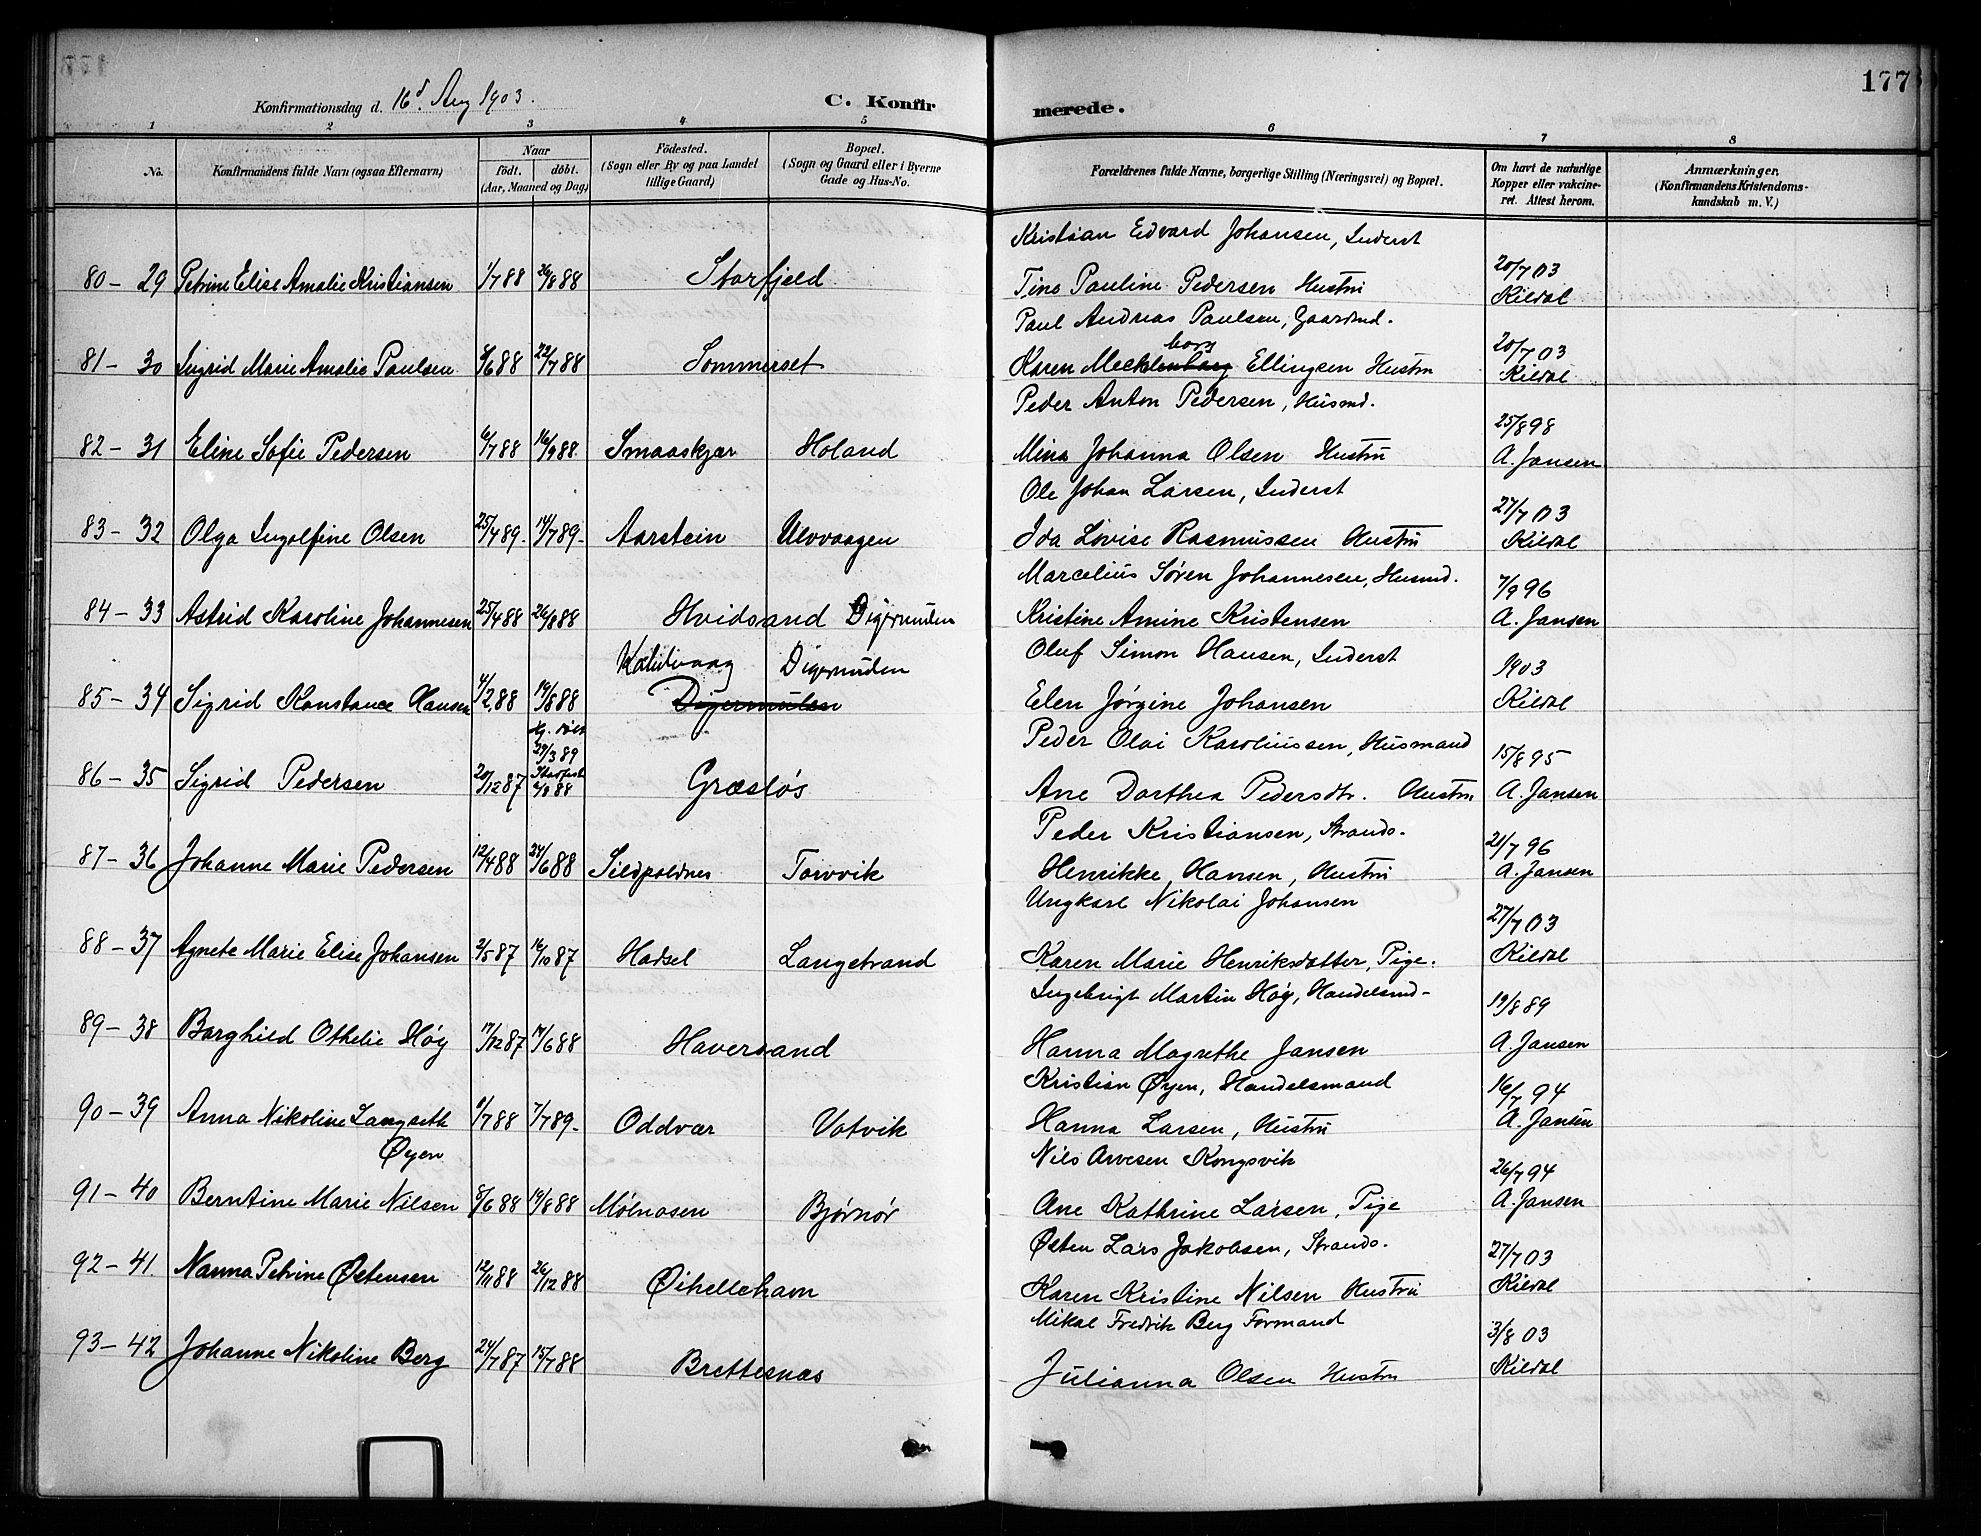 177
Konfirmationsdag d. 16d Aug 1903.
C. Konfirmerede.
1 2 3 4 5 6 7 8
No. Konfirmandens fulde Navn (ogsaa Efternavn) Naar födt. döbt. (Aar, Maaned og Dag) Födested. (Sogn eller By og paa Landet tillige Gaard) Bopæl. (Sogn og Gaard eller i Byerne Gade og Hus-No. Forældrenes fulde Navne, borgerlige Stilling (Næringsvei) og Bopæl. Om havt de naturlige Kopper eller vakcineret. Attest herom. Anmærkninger. (Konfirmandens Kristendomskundskab m. V.)
Kristian Edvard Johansen, Inderst
80 - 29 Petrine Elise Amalie Kristiansen 1/7 88 26/8 88 Storfjeld Tina Pauline Pedersen Hustru 20/7 03 Kildal
Paul Andreas Paulsen, Gaardmd.
81 - 30 Sigrid Marie Amalie Paulsen 8/6 88 22/7 88 Sommerset Karen Mecklenborg Ellingsen Hustru 20/7 03 Kildal
Peder Anton Pedersen, Husmd.
82 - 31 Eline Sofie Pedersen 6/7 88 16/9 88. Smaaskjær Holand Mina Johanna Olsen Hustru 25/8 98 A. Jansen
Ole Johan Larsen, Inderst
83 - 32 Olga Ingolfine Olsen 25/4 89. 14/7 89. Aarstein Ulvvaagen Ida Lovise Rasmussen Hustru 27/7 03 Kildal
Marcelius Søren Johannesen, Husmd.
84 - 33 Astrid Karoline Johannesen 25/4 88 26/8 88 Hvidsand Digermulen Kristine Amine Kristensen 7/9 96 A. Jansen
Oluf Simon Hansen, Inderst
Digermulen
85 - 34 Sigrid Konstance Hansen 4/2 88 19/8 88 Digermulen Elen Jørgine Johansen 1903 Kildal
Peder Olai Karoliussen, Husmand
86 - 35 Sigrid Pedersen 20/12 87 Græsløs Ane Dorthea Pedersdtr. Hustru 15/8 95 A. Jansen
Peder Kristiansen, Strands.
87 - 36 Johanne Marie Pedersen 12/4 88 24/6 88 Sildpoldnes Torvvik Henrikke Hansen, Hustru 21/7 96 A. Jansen
Ungkarl Nikolai Johansen
88 - 37 Agnete Marie Elise Johansen 2/5 87 16/10 87 Hadsel Langstrand Karen Marie Henriksdatter, Pige. 27/7 03 Kildal
Ingebrigt Martin Høy, Handelsmd.
89 - 38 Borghild Othelie Høy 17/12 87 17/6 88 Haversand Hanna Magrethe Jansen 19/8 89 A. Jansen
Kristian Øyen, Handelsmand
90 - 39 Anna Nikoline Langseth Øyen 8/7 88 7/7 89. Oddvær Votvik Hanna Larsen, Hustru 16/7 94 A. Jansen
Nils Arvesen Kongsvik
91 - 40 Berntine Marie Nilsen 8/6 88 19/8 88 Mølnosen Bjørnør Ane Kathrine Larsen, Pige 26/7 94 A. Jansen
Østen Lars Jakobsen, Strands.
92 - 41. Nanna Petrine Østensen 12/11 88 26/12 88 Øihellehavn Karen Kristine Nilsen Hustru 27/7 03 Kildal
Mikal Fredrik Berg Formand
93 - 42 Johanne Nikoline Berg 24/7 87 15/7 88 Brettesnæs Julianna Olsen Hustru 3/8 03 Kildal